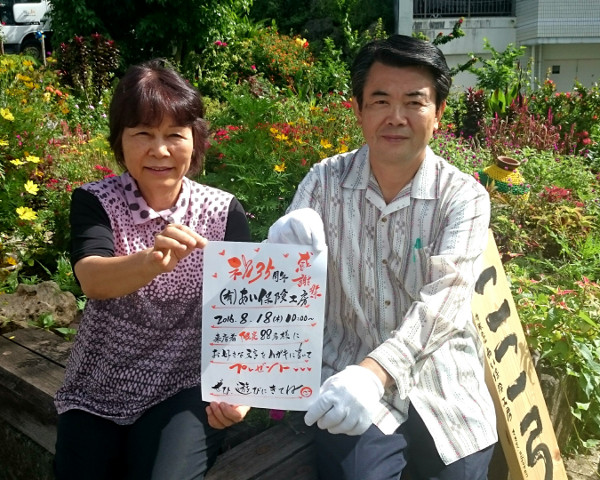 祝35周年
感謝祭
(有)あい保険工房
2016. 8. 18(木) 10:00〜
来店者 限定 88名様に
お好きな文字をハガキに書いて
プレゼント
ぜひ、遊びにきてね